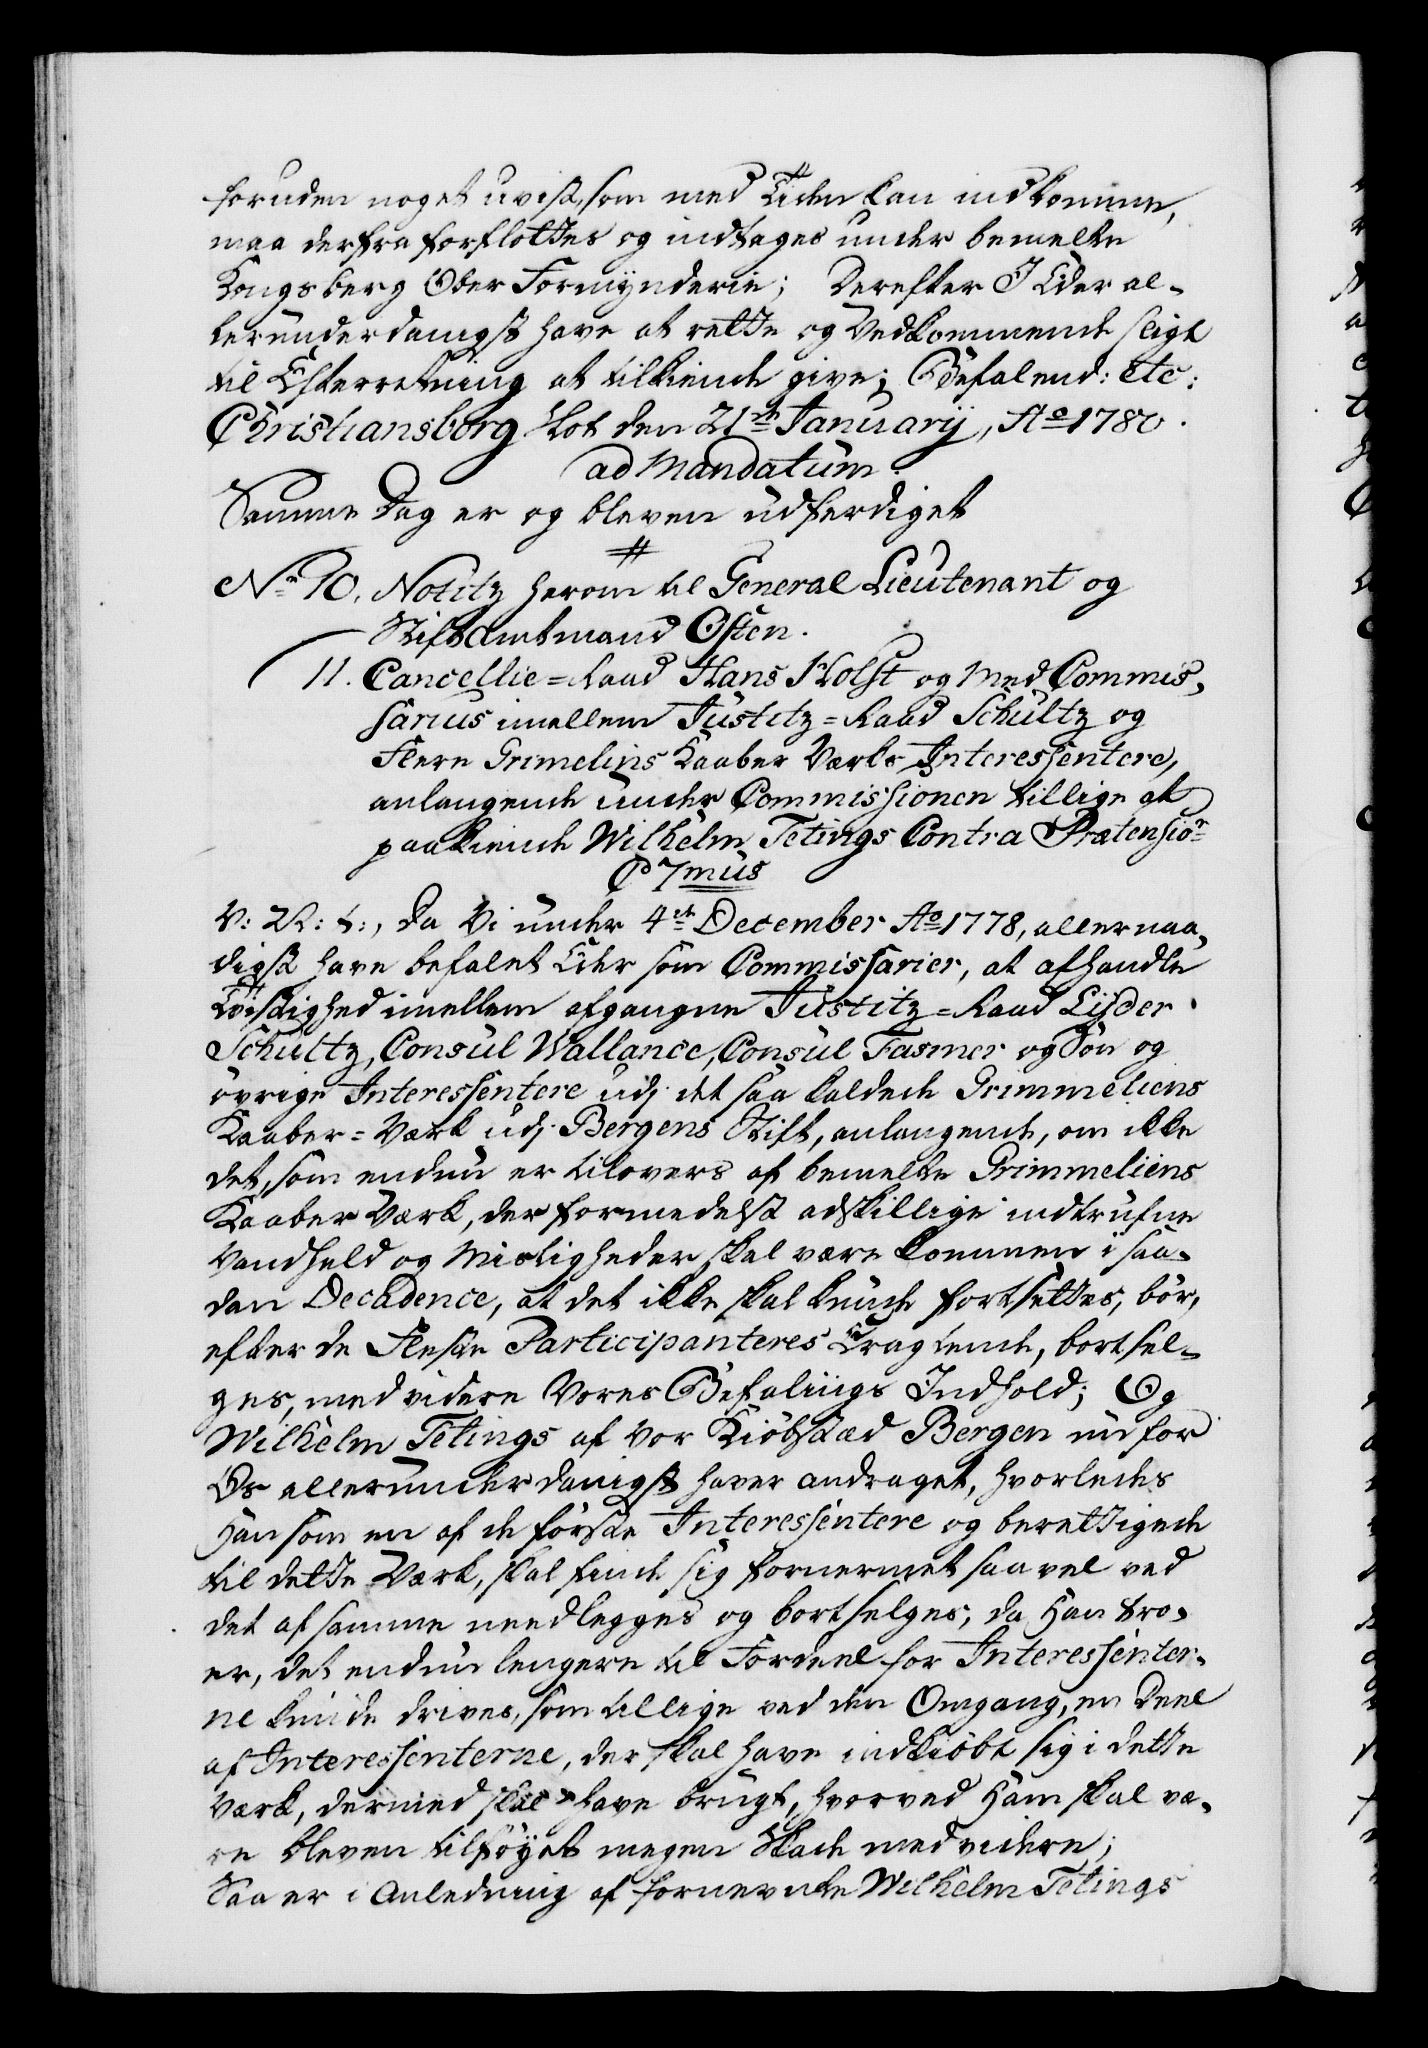 foruden noget uvist, som med Tiden kan indkomme,
maa derfra forflottes og indtages under bemelte
Kongsberg Ober Formynderie; Derefter I Eder al-
lerunderdanigst have at rette og Vedkommende sligt
til Efterretning at tilkiende give; Befalend: etc:
Christiansborg Slot den 21de Januarij, Ao 1780.
ad Mandatum.
Samme Dag er og bleven udferdiget
No 10. Notitz herom til General Lieutenant og
Stiftamtmand Osten.
11. Cancellie=Raad Hans Holst og Med Commis-
sarius imellem Justitz=Raad Schultz og
Flere Grimelins Kaaber Værks Interessentere,
anlangende under Commissionen tillige at
paakiende Wilhelm Tetings Contra Prætensior
C 7mus
V: R: t:, Da Vi under 4de December Ao 1778, allernaa-
digst have befalet Eder som Commissarier, at afhandle
Tvistighed imellem afgangne Justitz=Raad Lyder
Schultz, Consul Wallance, Consul Fasmer og Søn og
øvrige Interessentere udj det saa kaldede Grimmeliens
Kaaber=Værk udj Bergens Stift, anlangende, om ikke
det, som endnu er tilovers af bemelte Grimmeliens
Kaaber Værk, der formedelst adskillige indtrufne
Vandheld og Misligheder skal være kommen i saa-
dan Decadence, at det ikke skal kunde fortsettes, bør,
efter de Fleste Participanteres Tragtende, bortsel-
ges, med videre Vores Befalings Indhold; Og
Wilhelm Tetings af Vor Kiøbstæd Bergen nu for
Os allerunderdanigst haver andraget, hvorledes
Han som en af de første Interessentere og berettigede
til dette Værk, skal finde sig fornermet saavel ved
det af samme needlegges og bortselges, da Han tro-
er, det endnu lengere til Fordeel for Interessenter-
ne kunde drives, som tillige ved den Omgang, en Deel
af Interessenterne, der skal have indkiøbt sig i dette
Værk, dermed skal have brugt, hvorved Ham skal væ-
re bleven tilføyet megen Skade med videre;
Saa er i Anledning af fornevnte Wilhelm Tetings